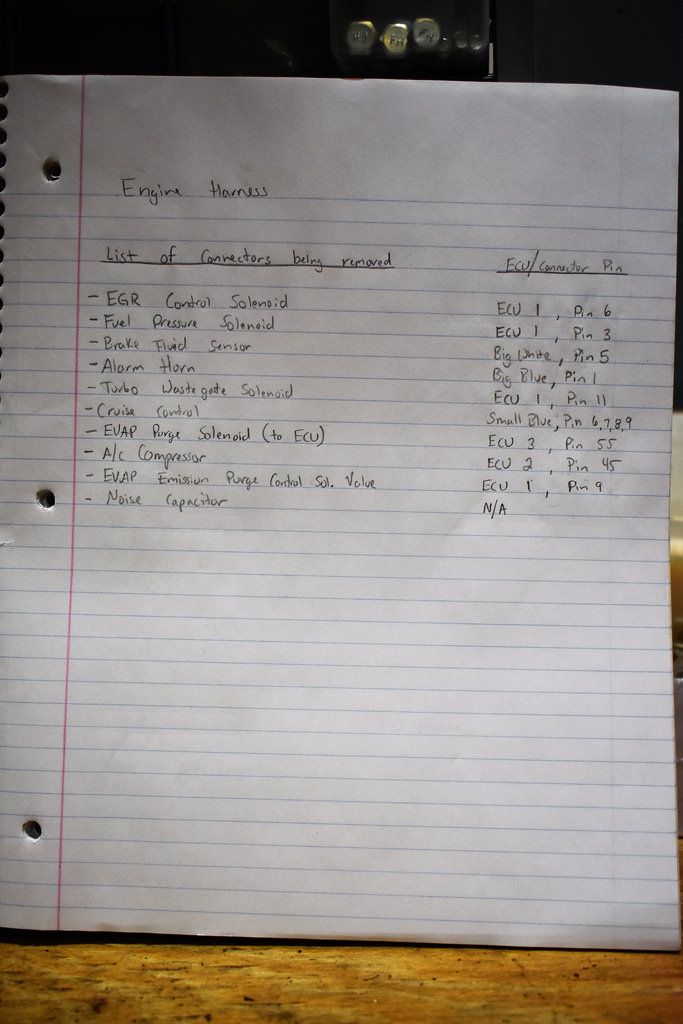 Engine Harness
List of Connectors being removed ECU/Connector Pin
- EGR Control Solenoid ECU 1, Pin 6
- Fuel Pressure Solenoid ECU 1, Pin 3
- Brake Fluid Sensor Big White, Pin 5
- Alarm Horn Big Blue, Pin 1
- Turbo Wastegate Solenoid ECU 1, Pin 11
- Cruise Control Small Blue, Pin 6,7,8,9
- EVAP Purge Solenoid (to ECU) ECU 3, Pin 55
- A/C Compressor ECU 2, Pin 45
- EVAP Emission Purge Control Sol. Valve ECU 1, Pin 9
- Noise Capacitor N/A